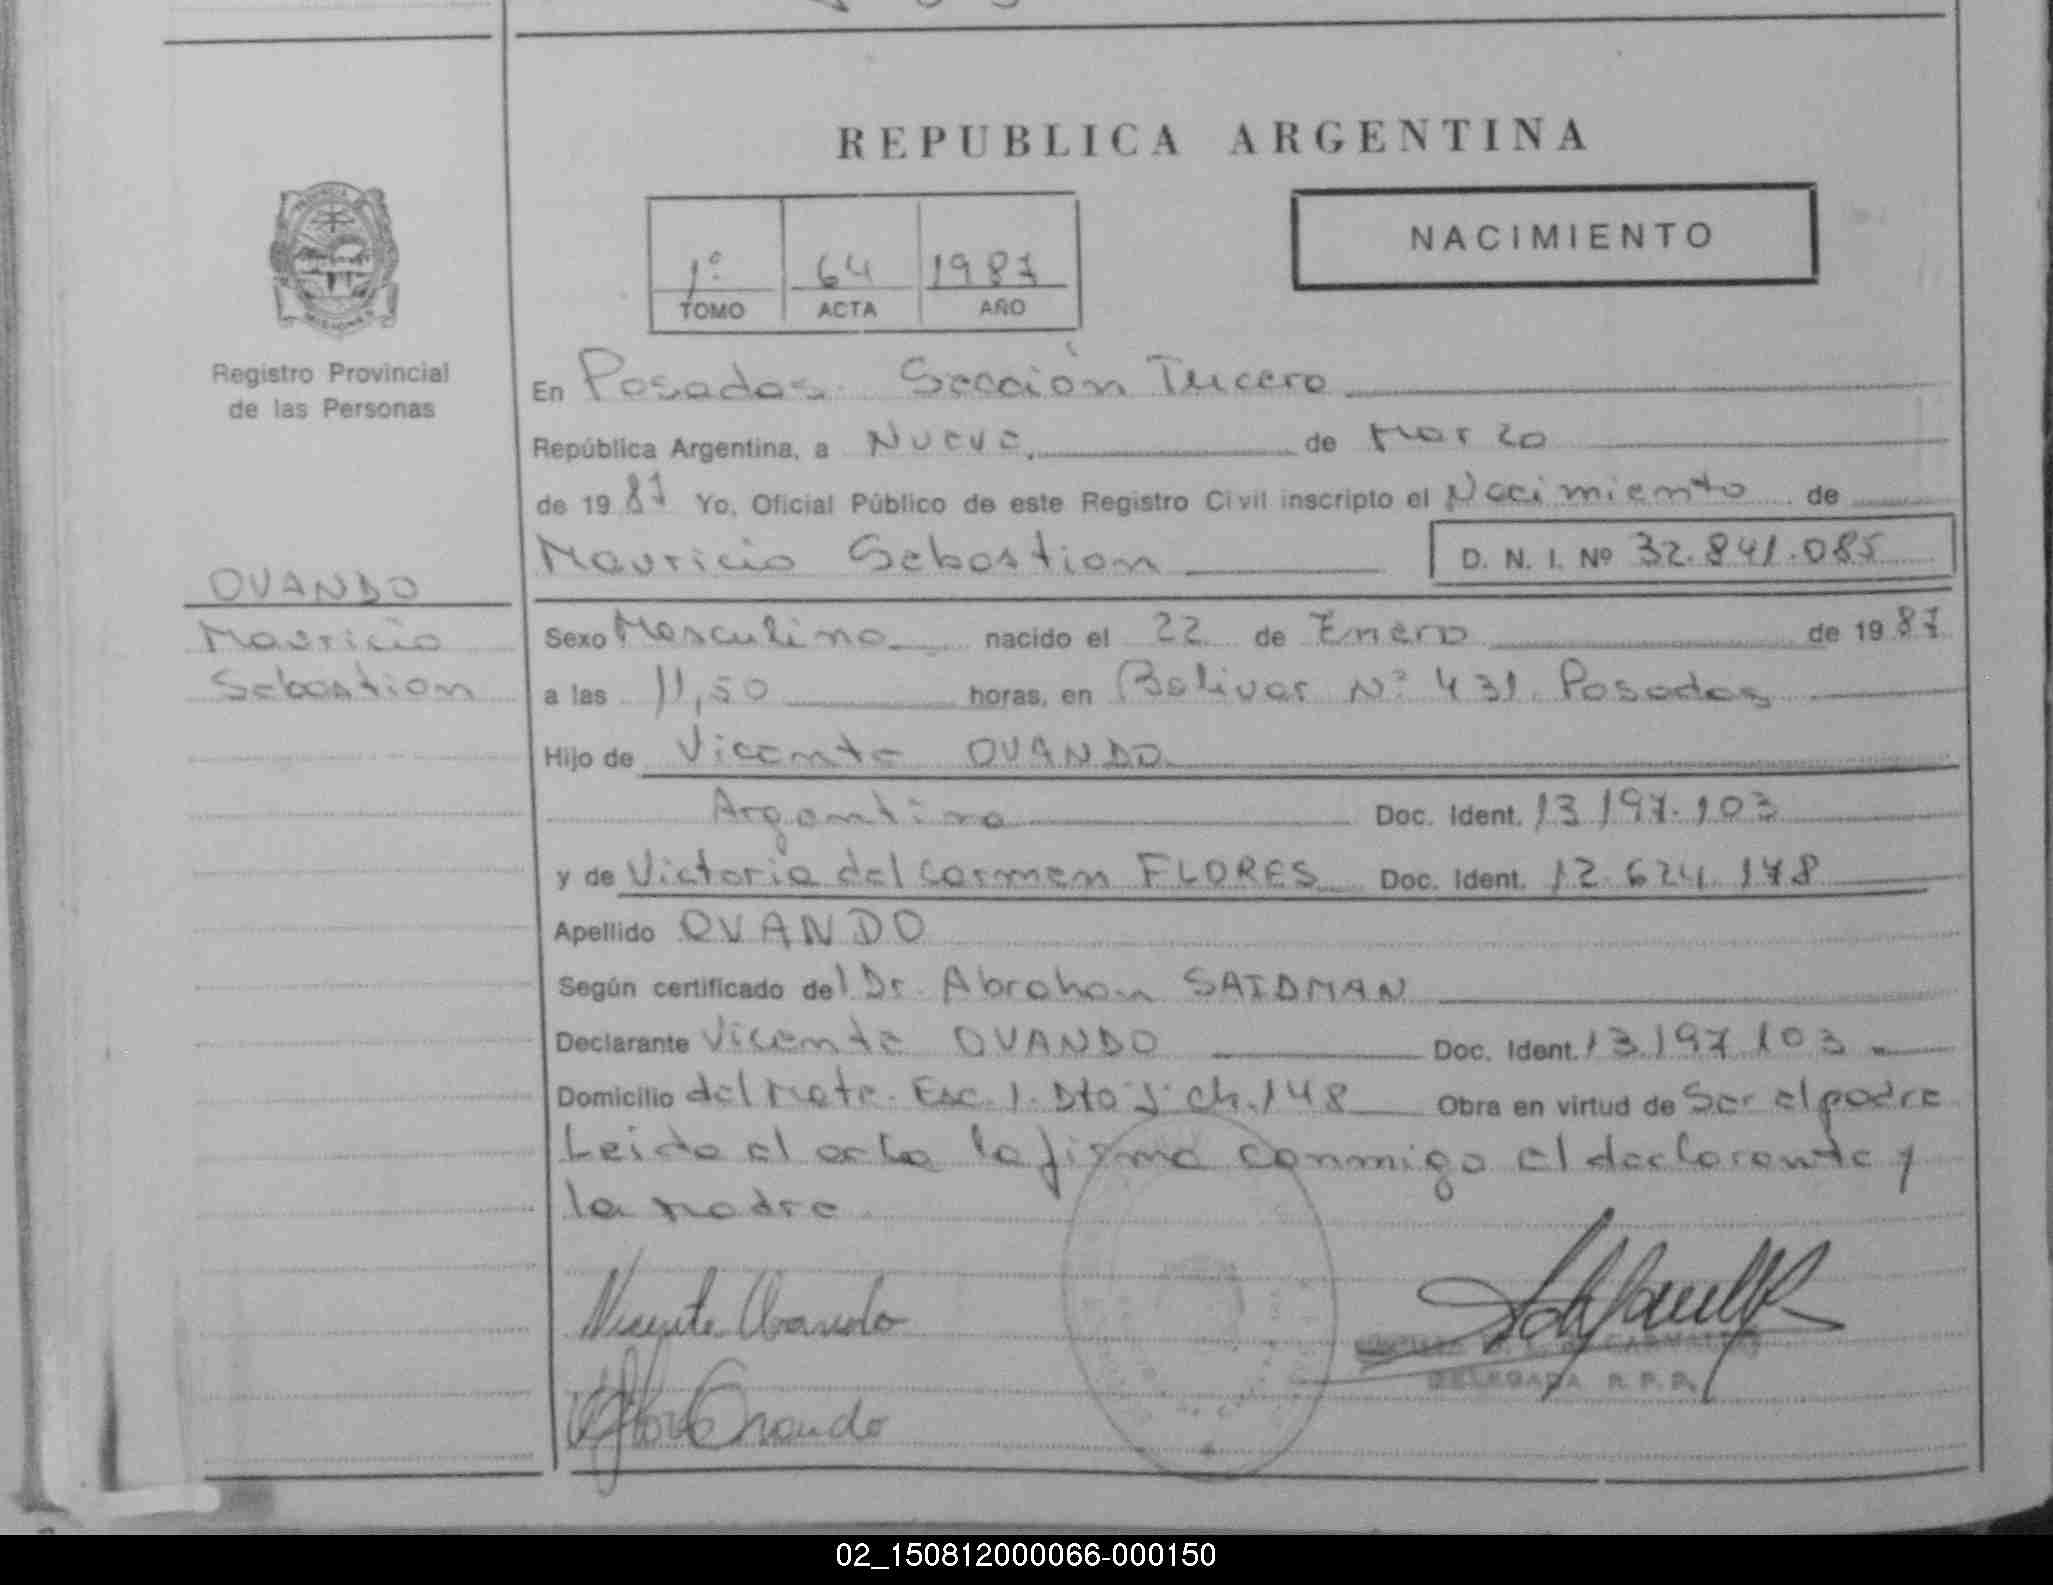 REPUBLICA ARGENTINA
NACIMIENTO
1º 64 1987
TOMO ACTA AÑO
PROVINCIA
MISIONES
Registro Provincial
de las Personas
OVANDO
Mauricio
Sebastian
En Posadas. Sección Tercera
República Argentina, a Nueve de Marzo
de 1987 Yo, Oficial Público de este Registro Civil inscripto el Nacimiento de
Mauricio Sebastian D. N. I. Nº 32.841.085
Sexo Masculino nacido el 22 de Enero de 1987
a las 11,50 horas, en Bolivar Nº 431. Posadas
Hijo de Vicente OVANDO
Argentino Doc. Ident. 13.197.103
y de Victoria del Carmen FLORES Doc. Ident. 12.624.178
Apellido OVANDO
Según certificado del Dr. Abraham SAIDMAN
Declarante Vicente OVANDO Doc. Ident. 13.197.103
Domicilio del Mate. Esc. 1. Dto "J" ch. 148 Obra en virtud de Ser el padre
Leida el acta la firma conmigo el declarante y
la madre
Vicente Ovando
Ovando
CARVALLO
DELEGADA R. P. P.
02_150812000066-000150